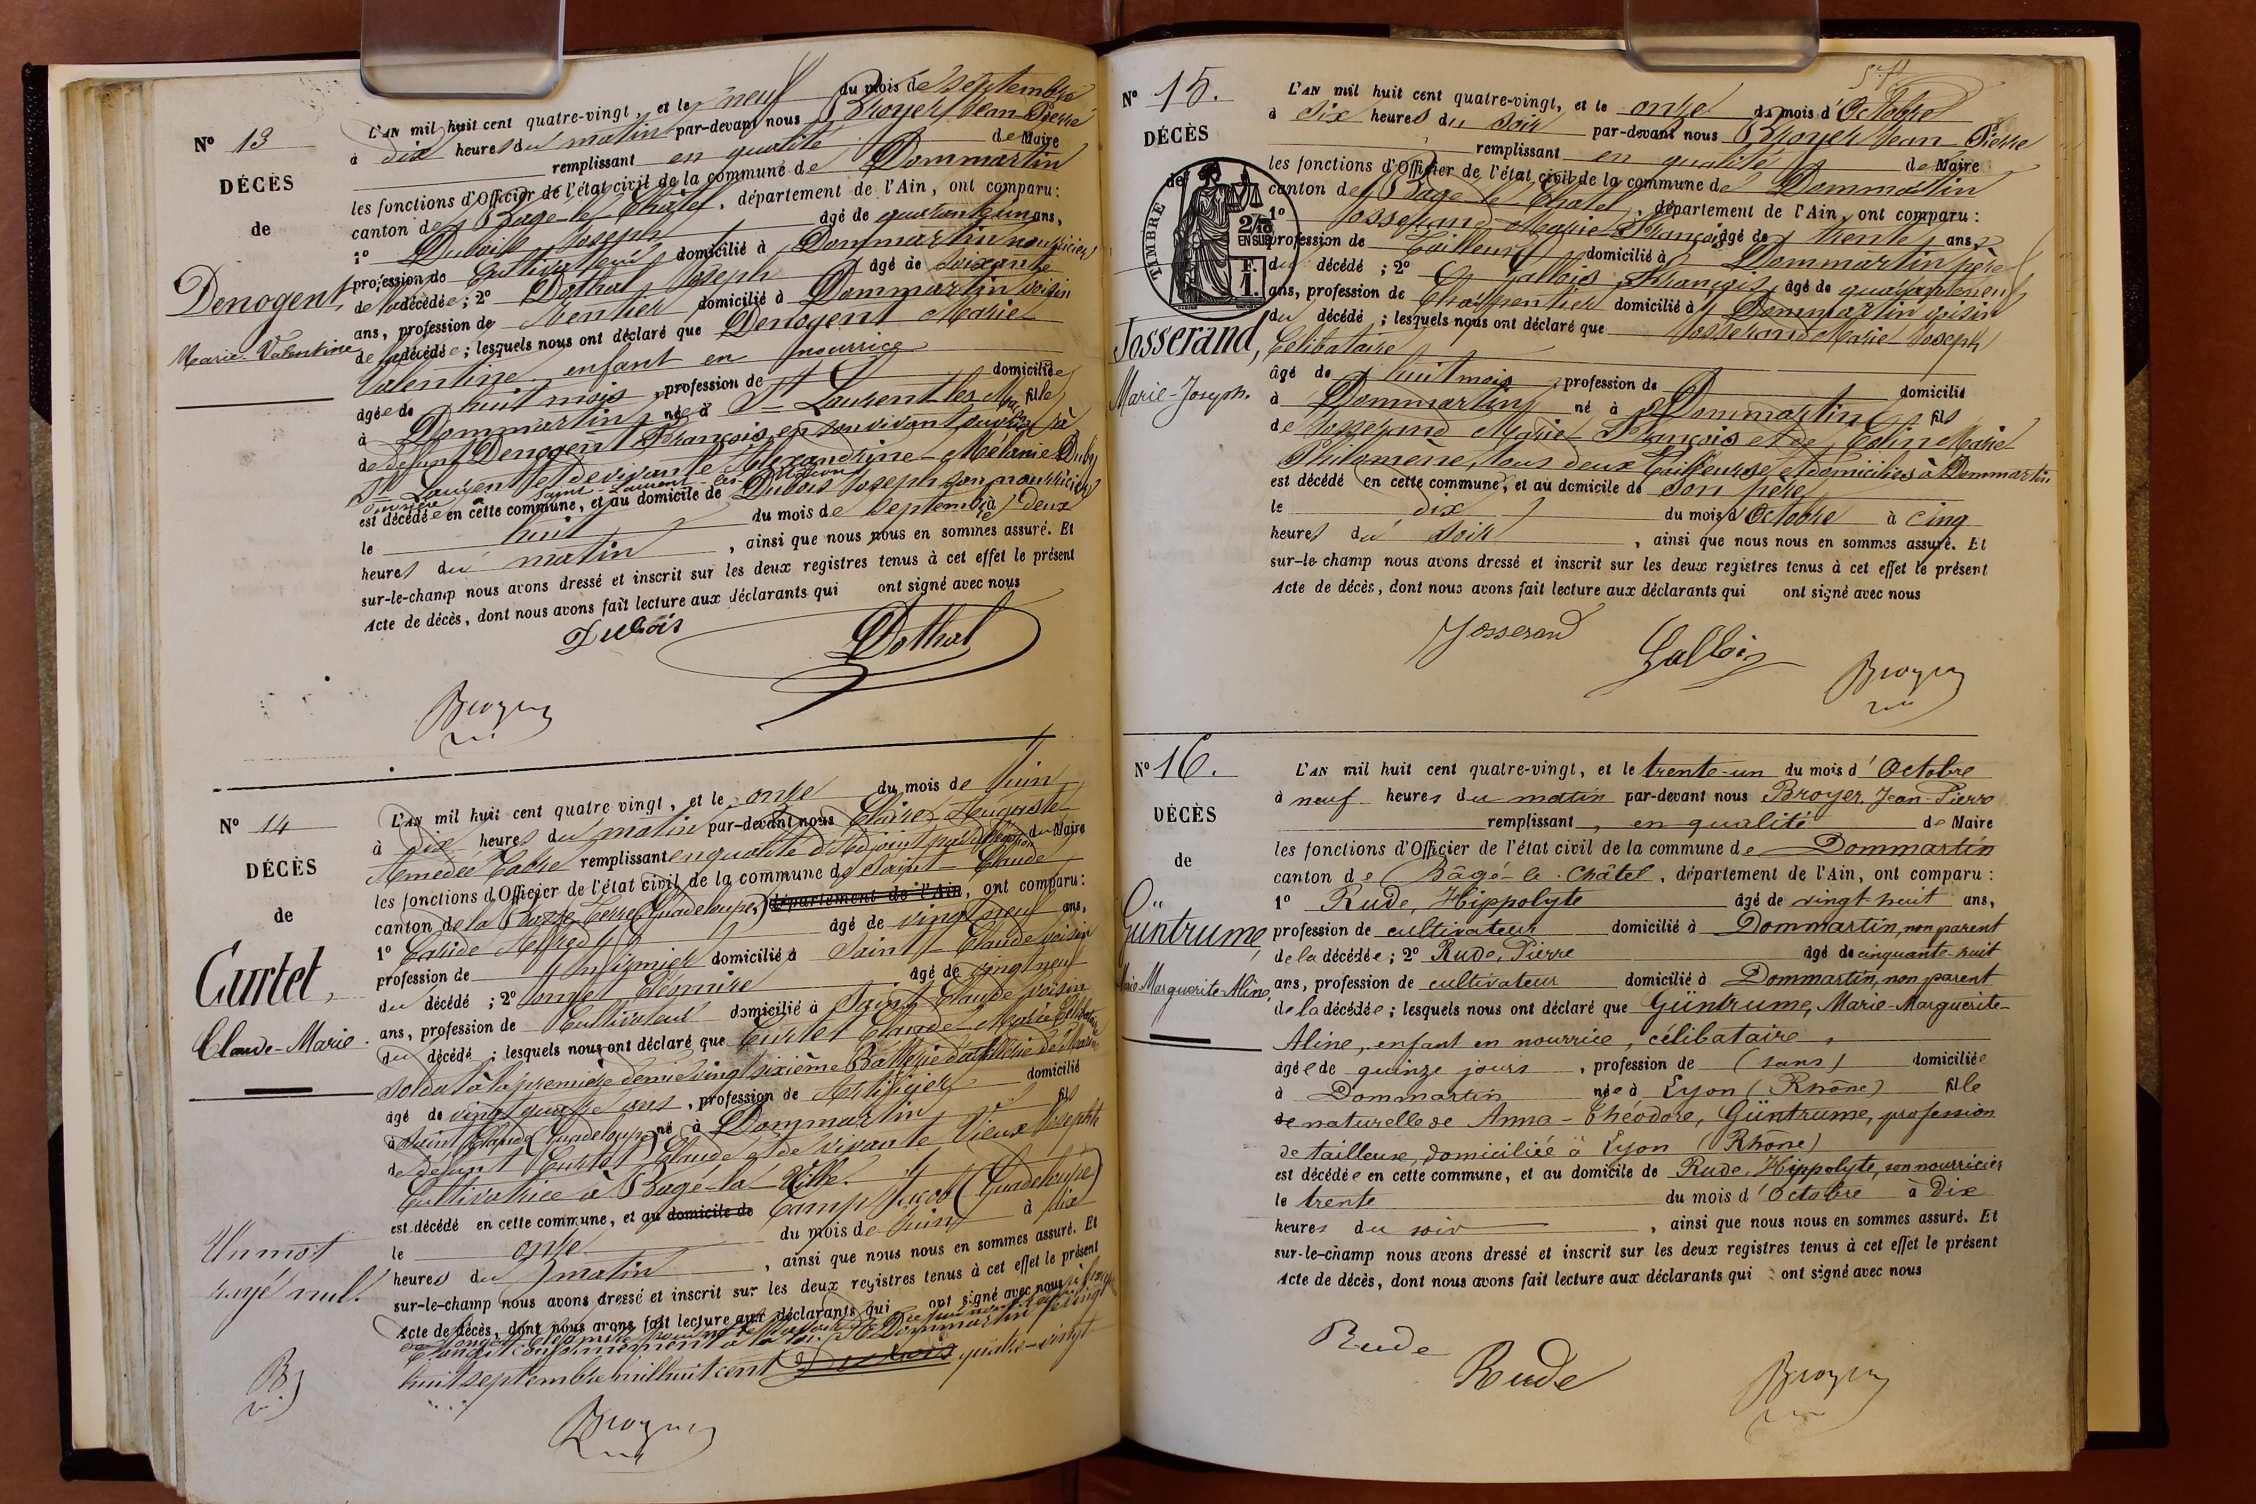 N° 13
DÉCÈS
de
Denogent,
Marie-Valentine
L'AN mil huit cent quatre-vingt, et le neuf du mois de septembre
à dix heures du matin par-devant nous Broyer Jean Pierre
remplissant en qualité de Maire
les fonctions d'Officier de l'état civil de la commune de Dommartin
canton de Bage le Chatel, département de l'Ain, ont comparu :
1° Dubois Joseph âgé de quarante cinq ans,
profession de Cultivateur domicilié à Dommartin nourricier
de la décédée ; 2° Dothal Joseph âgé de soixante
ans, profession de Rentier domicilié à Dommartin voisin
de la décédée ; lesquels nous ont déclaré que Denogent Marie
Valentine, enfant en nourrice
âgée de huit mois, profession de domiciliée
à Dommartin née à St Laurent les Mâcon fille
de défunt Denogent François en son vivant ouvrier à
St Laurent et de vivante Alexandrine Mélanie Duby
ouvrière à Saint-Laurent-les-Mâcon
est décédée en cette commune, et au domicile de Dubois Joseph son nourricier
le huit du mois de septembre à deux
heures du matin, ainsi que nous nous en sommes assuré. Et
sur-le-champ nous avons dressé et inscrit sur les deux registres tenus à cet effet le présent
Acte de décès, dont nous avons fait lecture aux déclarants qui ont signé avec nous
Dubois
Dothal
Broyer
N° 14
DÉCÈS
de
Curtet,
Claude-Marie.
L'AN mil huit cent quatre vingt, et le onze du mois de Juin
à dix heures du matin par-devant nous Claire Auguste
Amédée remplissant en qualité d'adjoint par délégation du Maire
les fonctions d'Officier de l'état civil de la commune de Saint-Claude
canton de la Basse-Terre (Guadeloupe,) département de l'Ain, ont comparu :
1° Alfred âgé de vingt neuf ans,
profession de Infirmier domicilié à Saint-Claude voisin
du décédé ; 2° âgé de vingt neuf
ans, profession de Cultivateur domicilié à Saint Claude voisin
du décédé ; lesquels nous ont déclaré que Curtet Claude-Marie Célibataire
Soldat à la première demie vingt sixième Batterie d'artillerie de Marine
âgé de vingt quatre ans, profession de Artificier domicilié
à Saint Claude (Guadeloupe) né à Dommartin fils
de défunt Curtet Claude et de vivante Vieux Josephte
Cultivatrice à Bagé-la-Ville.
est décédé en cette commune, et au domicile de Camp Jacob (Guadeloupe)
le onze du mois de Juin à dix
heures du matin, ainsi que nous nous en sommes assuré. Et
sur-le-champ nous avons dressé et inscrit sur les deux registres tenus à cet effet le présent
Acte de décès, dont nous avons fait lecture aux déclarants qui ont signé avec nous
conformément à la loi. Dommartin le vingt
huit septembre mil huit cent quatre-vingt
Un mot
rayé nul.
B
Broyer
N° 15.
DÉCÈS
de
TIMBRE
2/10
EN SUS
F.
1.
Josserand,
Marie-Joseph.
L'AN mil huit cent quatre-vingt, et le onze du mois d'Octobre
à six heures du soir par-devant nous Broyer Jean Pierre
remplissant en qualité de Maire
les fonctions d'Officier de l'état civil de la commune de Dommartin
canton de Bage le Chatel, département de l'Ain, ont comparu :
1° Josserand Marie François âgé de trente ans,
profession de Tailleur domicilié à Dommartin père
du décédé ; 2° Gallois François, âgé de quarante neuf
ans, profession de Charpentier domicilié à Dommartin voisin
du décédé ; lesquels nous ont déclaré que Josserand Marie Joseph
Célibataire
âgé de huit mois, profession de domicilié
à Dommartin né à Dommartin fils
de Josserand Marie François et de Colin Marie
Philomène, tous deux Tailleurs et domiciliés à Dommartin
est décédé en cette commune, et au domicile de son père
le dix du mois d'Octobre à cinq
heures du soir, ainsi que nous nous en sommes assuré. Et
sur-le-champ nous avons dressé et inscrit sur les deux registres tenus à cet effet le présent
Acte de décès, dont nous avons fait lecture aux déclarants qui ont signé avec nous
Josserand
Gallois
Broyer
N° 16.
DÉCÈS
de
Güntrume,
Marie-Marguerite-Aline,
L'AN mil huit cent quatre-vingt, et le trente-un du mois d'Octobre
à neuf heures du matin par-devant nous Broyer, Jean-Pierre
remplissant, en qualité de Maire
les fonctions d'Officier de l'état civil de la commune de Dommartin
canton de Bâgé-le-Châtel, département de l'Ain, ont comparu :
1° Rude, Hippolyte âgé de vingt-huit ans,
profession de cultivateur domicilié à Dommartin, non parent
de la décédée ; 2° Rude, Pierre âgé de cinquante-huit
ans, profession de cultivateur domicilié à Dommartin, non parent
de la décédée ; lesquels nous ont déclaré que Güntrume, Marie-Marguerite-
Aline, enfant en nourrice, célibataire,
âgée de quinze jours, profession de (sans) domiciliée
à Dommartin née à Lyon (Rhône) fille
de naturelle de Anna-Théodore, Güntrume, profession
de tailleuse, domiciliée à Lyon (Rhône)
est décédée en cette commune, et au domicile de Rude, Hippolyte, son nourricier
le trente du mois d'Octobre à Dix
heures du soir, ainsi que nous nous en sommes assuré. Et
sur-le-champ nous avons dressé et inscrit sur les deux registres tenus à cet effet le présent
Acte de décès, dont nous avons fait lecture aux déclarants qui ont signé avec nous
Rude
Rude
Broyer